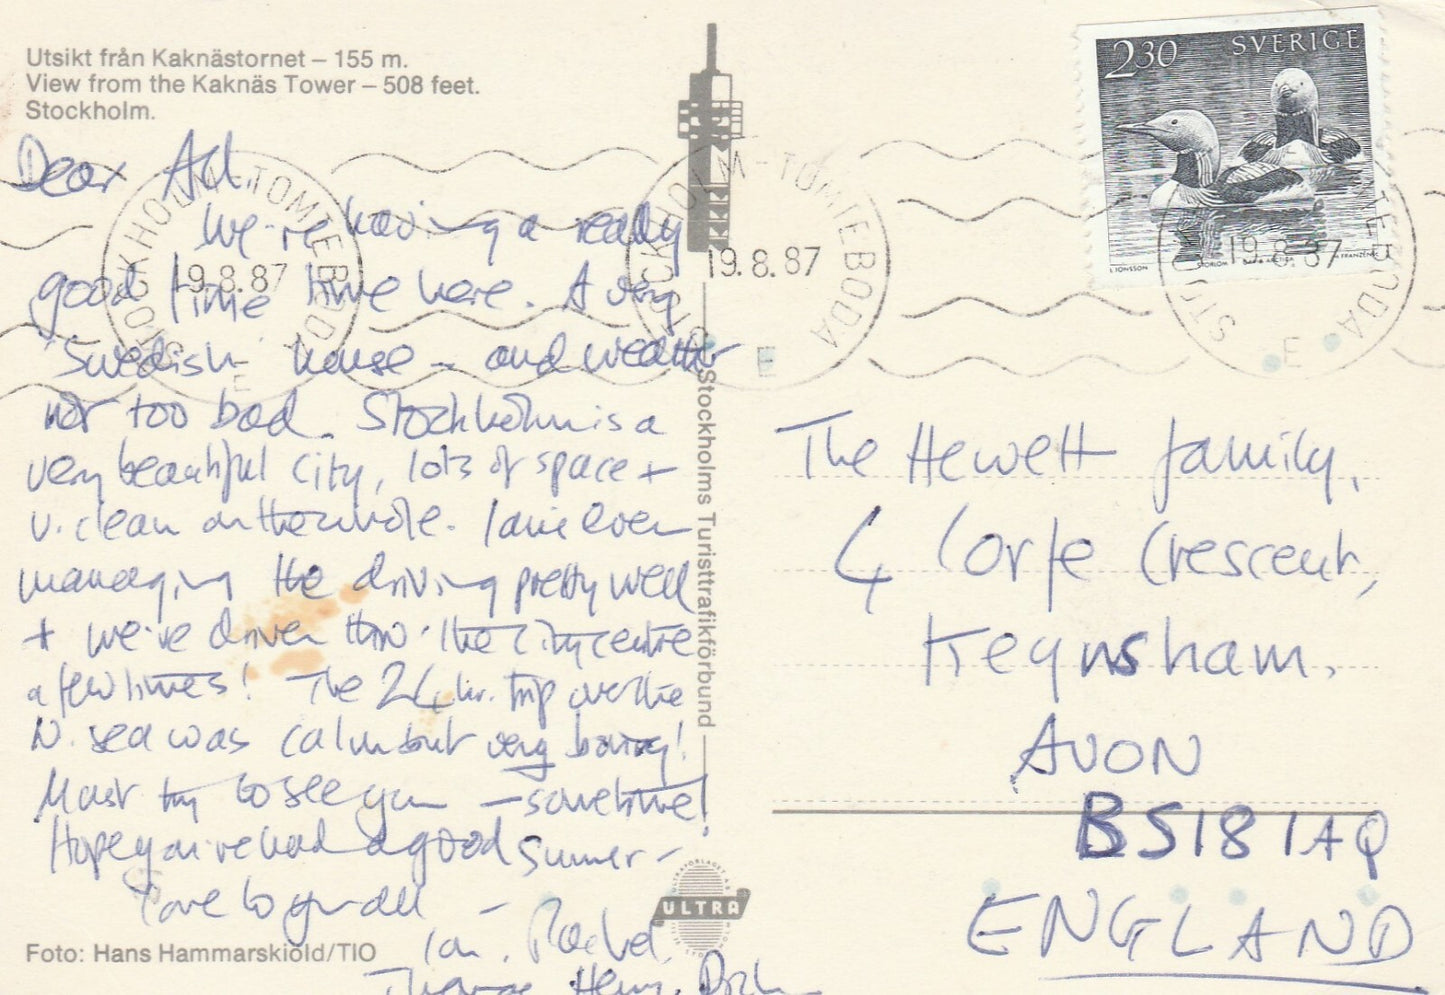 Utsikt från Kaknästornet – 155 m.
View from the Kaknäs Tower – 508 feet.
Stockholm.
2.30 SVERIGE
L JONSSON STORLOM FRANZÉN
STOCKHOLM-TOMTEBODA
19.8.87
E
STOCKHOLM-TOMTEBODA
19.8.87
E
STOCKHOLM-TOMTEBODA
19.8.87
E
Dear Ad,
We're having a really
good time time here. A very
'Swedish' house – and weather
not too bad. Stockholm is a
very beautiful city, lots of space +
v. clean on the whole. I am even
managing the driving pretty well
+ we've driven thro' the city centre
a few times! The 24 hr. trip over the
N. sea was calm but very boring!
Must try to see you – sometime!
Hope you've had a good summer –
love to you all –
Ian, Rachel,
Henry
Stockholms Turisttrafikförbund
The Hewett family,
4 Corfe Crescent,
Keynsham.
AVON
BS18 1AQ
ENGLAND
ULTRA
Foto: Hans Hammarskiöld/TIO